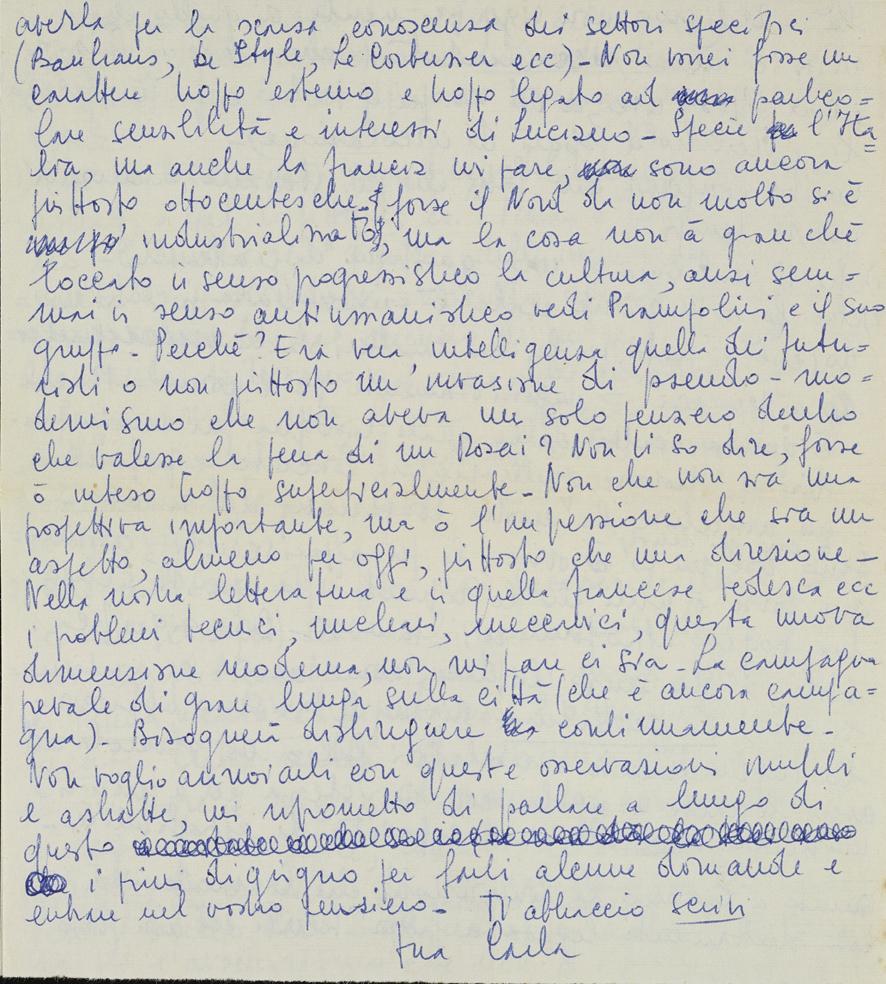 averla per la scarsa conoscenza dei settori specifici
(Bauhaus, De Style, Le Corbusier ecc) - Non vorrei fosse un
carattere troppo esterno e troppo legato ad partico=
lare sensibilità e interessi di Luciano - Specie l'Ita
lia, ma anche la francia mi pare, sono ancora
piuttosto ottocentesche - forse il Nord da non molto si è
industrializzato, ma la cosa non à gran chè
toccato in senso progressistico la cultura, anzi sem=
mai in senso antiumanistico vedi Prampolini e il suo
gruppo - Perchè? Era vera intelligenza quella dei futu=
risti o non piuttosto un'invasione di pseudo-mo=
dernismo che non aveva un solo pensiero dentro
che valesse la pena di un Rosai? Non ti so dire, forse
ò inteso troppo superficialmente - Non che non sia una
prospettiva importante, ma ò l'impressione che sia un
aspetto, almeno per oggi, piuttosto che una direzione -
Nella nostra letteratura e in quella francese tedesca ecc
i problemi tecnici, nucleari, meccanici, questa nuova
dimensione moderna, non mi pare ci sia - La campagna
prevale di gran lunga sulla città (che è ancora campa=
gna) - Bisognerà distinguere continuamente -
Non voglio annoiarti con queste osservazioni inutili
e astratte, mi riprometto di parlare a lungo di
questo
i primi di giugno per farti alcune domande e
entrare nel vostro pensiero - Ti abbraccio scrivi
tua Carla